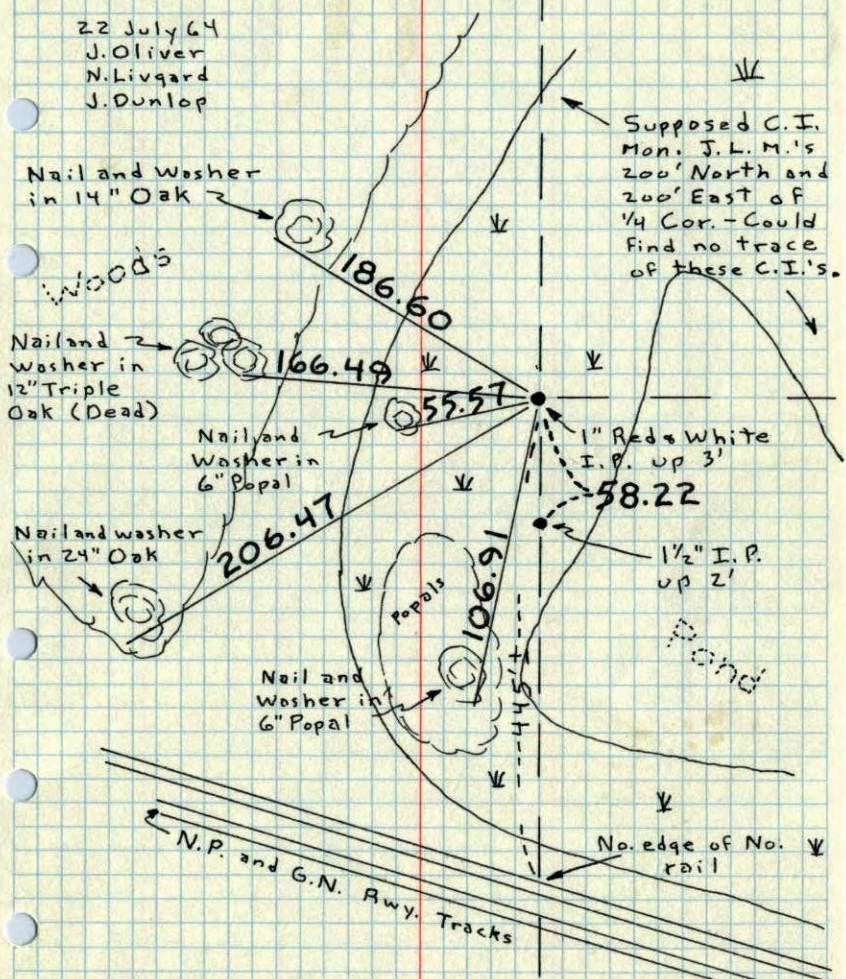 22 July 64
J. Oliver
N. Livgard
J. Dunlop
Supposed C.I.
Mon. J.L.M.'s
200' North and
200' East of
1/4 Cor. - Could
find no trace
of these C.I.'s.
Nail and Washer
in 14" Oak
Woods
186.60
Nail and
Washer in
12" Triple
Oak (Dead)
166.49
55.57
Nail and
Washer in
6" Popal
1" Red & White
I.P. up 3'
58.22
206.47
Nail and washer
in 24" Oak
1 1/2" I.P.
up 2'
106.91
Popals
Pond
445'±
Nail and
Washer in
6" Popal
No. edge of No.
rail
N.P. and G.N. Rwy. Tracks